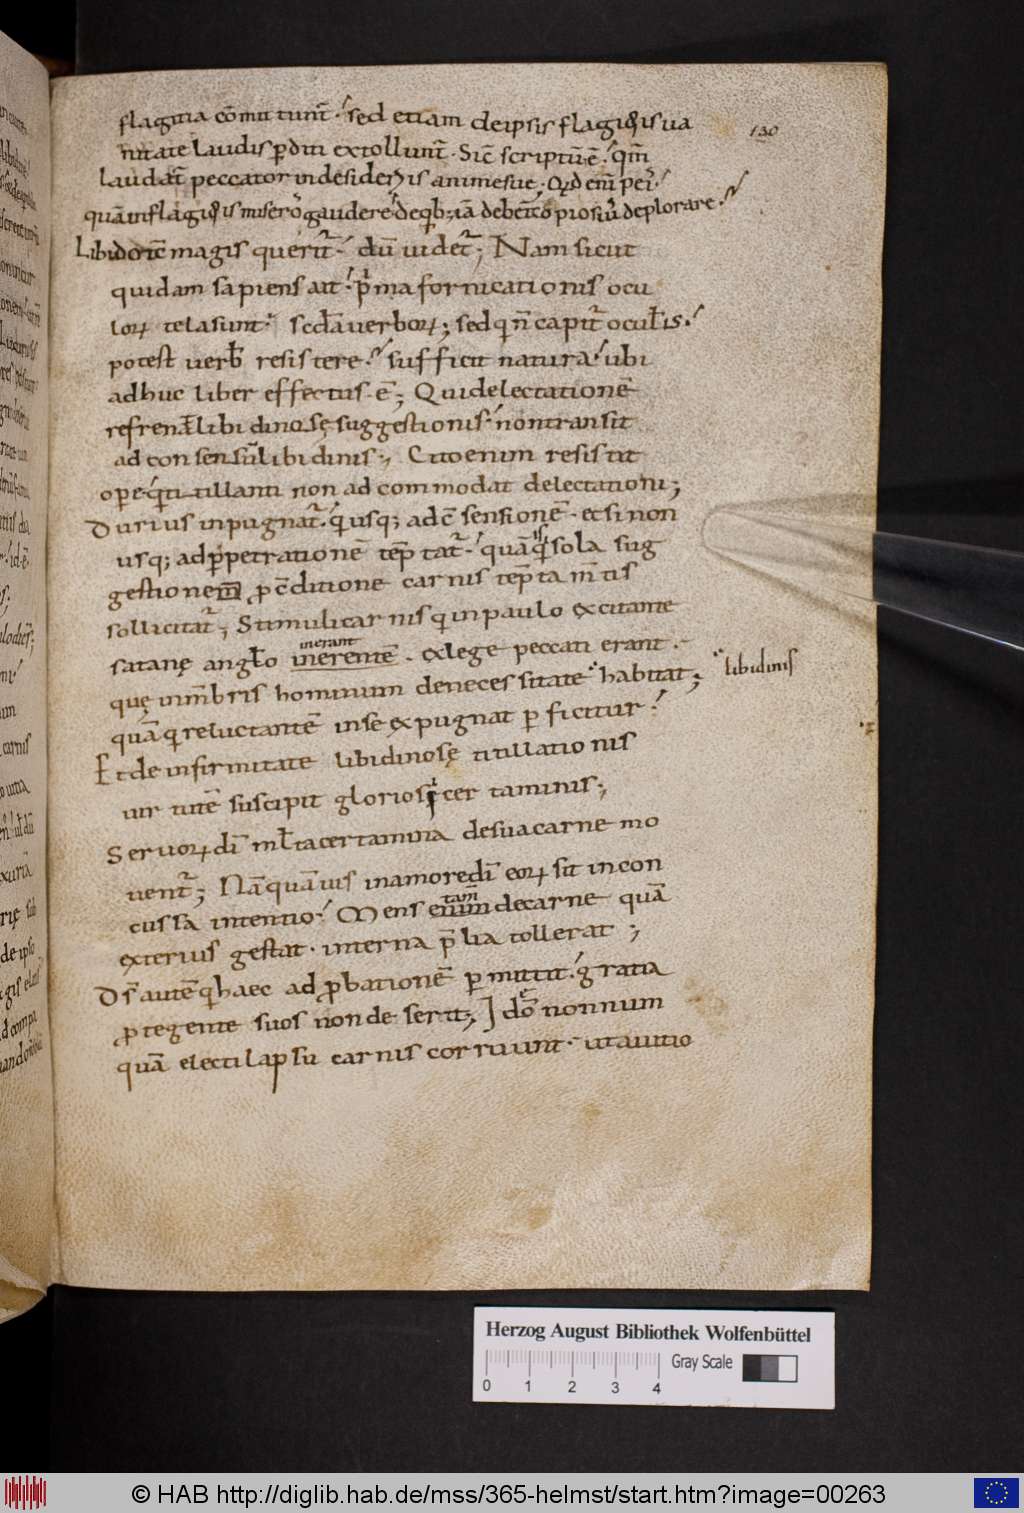 flagitia cōmittunt̄. sed etiam deipsis flagitiis ua
130
nitate laudis pditi extollunt̄. Sic̄ scriptū ē. qm̄
laudat̄ peccator indesideriis animesue.
quāinflagitiis misero gaudere deqb; iā debent
deplorare.
Libido ītē magis querit̄. dū uidet̄; Nam sicut
quidam sapiens ait. pma fornicationis ocu
lorꝝ tela sunt. scd̄a uerborꝝ; sed q n̄ capit̄ oculis.
potest uerb̄ resistere. sufficit natura. ubi
adhuc liber effectus. ē; Qui delectationē
refrenat̄ libidinosę suggestionis. non transit
ad consensū libidinis; Cito enim resistit
ope qti tillanti non ad commodat delectationi;
Durius inpugnat̄. qusq; adc̄sensionē. etsi non
usq; adppetrationē tēptat̄. quā q sola sug
is
gestionem pc̄ditione carnis tēpta m̄tis
sollicitat̄; Stimuli carnis q in paulo excitante
inerant
satanę angl̄o inerentē. exlege peccati erant.
quę inm̄bris hominum denecessitate habitat; libidinis
quā q reluctantē inse expugnat pficitur.
Et de infirmitate libidinosę titillationis
uir tutē suscipit gloriosi certaminis;
Seruorꝝ dī ml̄ta certamina desua carne mo
uent̄; Nā quāuis inamore dī eorꝝ sit incon
cussa intentio. Mens enim decarne quā
tam̄
exterius gestat. interna p̄lia tollerat;
Ds̄ autē q haec ad pbationē pmittit. gratia
ptegente suos non deserit; Ido nonnum
quā electi lapsu carnis corruunt. ut auitio
Herzog August Bibliothek Wolfenbüttel
Gray Scale
0 1 2 3 4
© HAB http://diglib.hab.de/mss/365-helmst/start.htm?image=00263